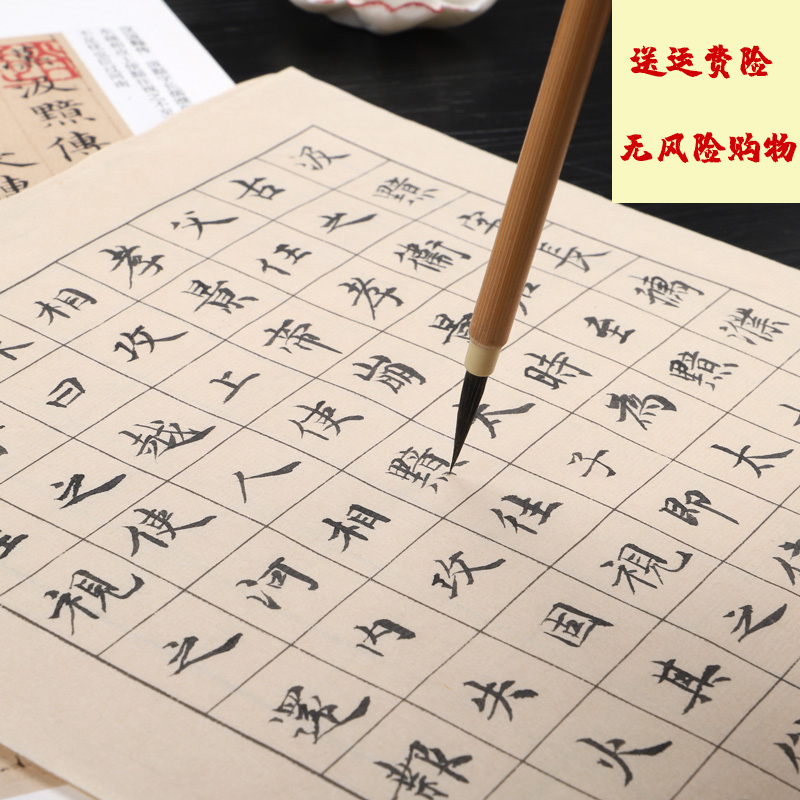 送运费险
无风险购物
汲黯傳
汲黯字長孺濮
古之衛君至黯
父任孝景時為太
孝景帝崩太子即
相攻上使黯往視之
曰越人相攻固其
之使河內失火
視之還報